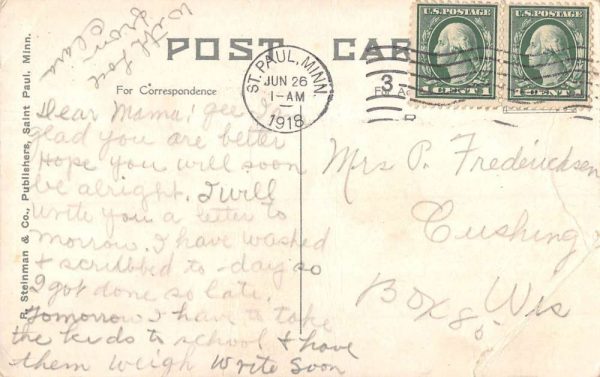 With love
from
Clara
POST CAR
For Correspondence
ST. PAUL, MINN.
JUN 26
1-AM
1918
3
U.S. POSTAGE
1 CENT 1
U.S. POSTAGE
CENT 1
Dear Mama! gee I'm
glad you are better
Hope you will soon
be alright. I will
write you a letter to
morrow. I have washed
+ scrubbed to-day so
I got done so late.
Tomorrow I have to take
the kids to school + have
them weigh Write Soon
Mrs P. Fredericksen
Cushing
Box 80 Wis
P. Steinman & Co., Publishers, Saint Paul, Minn.